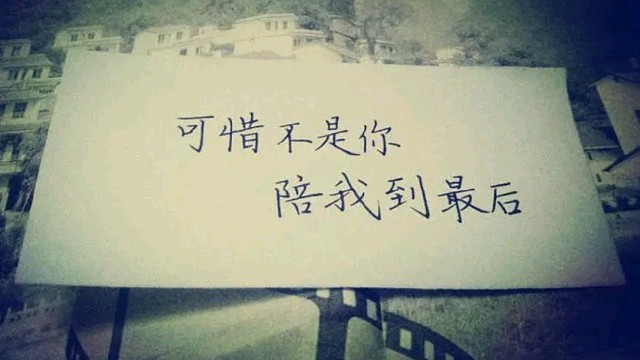 可惜不是你
陪我到最后